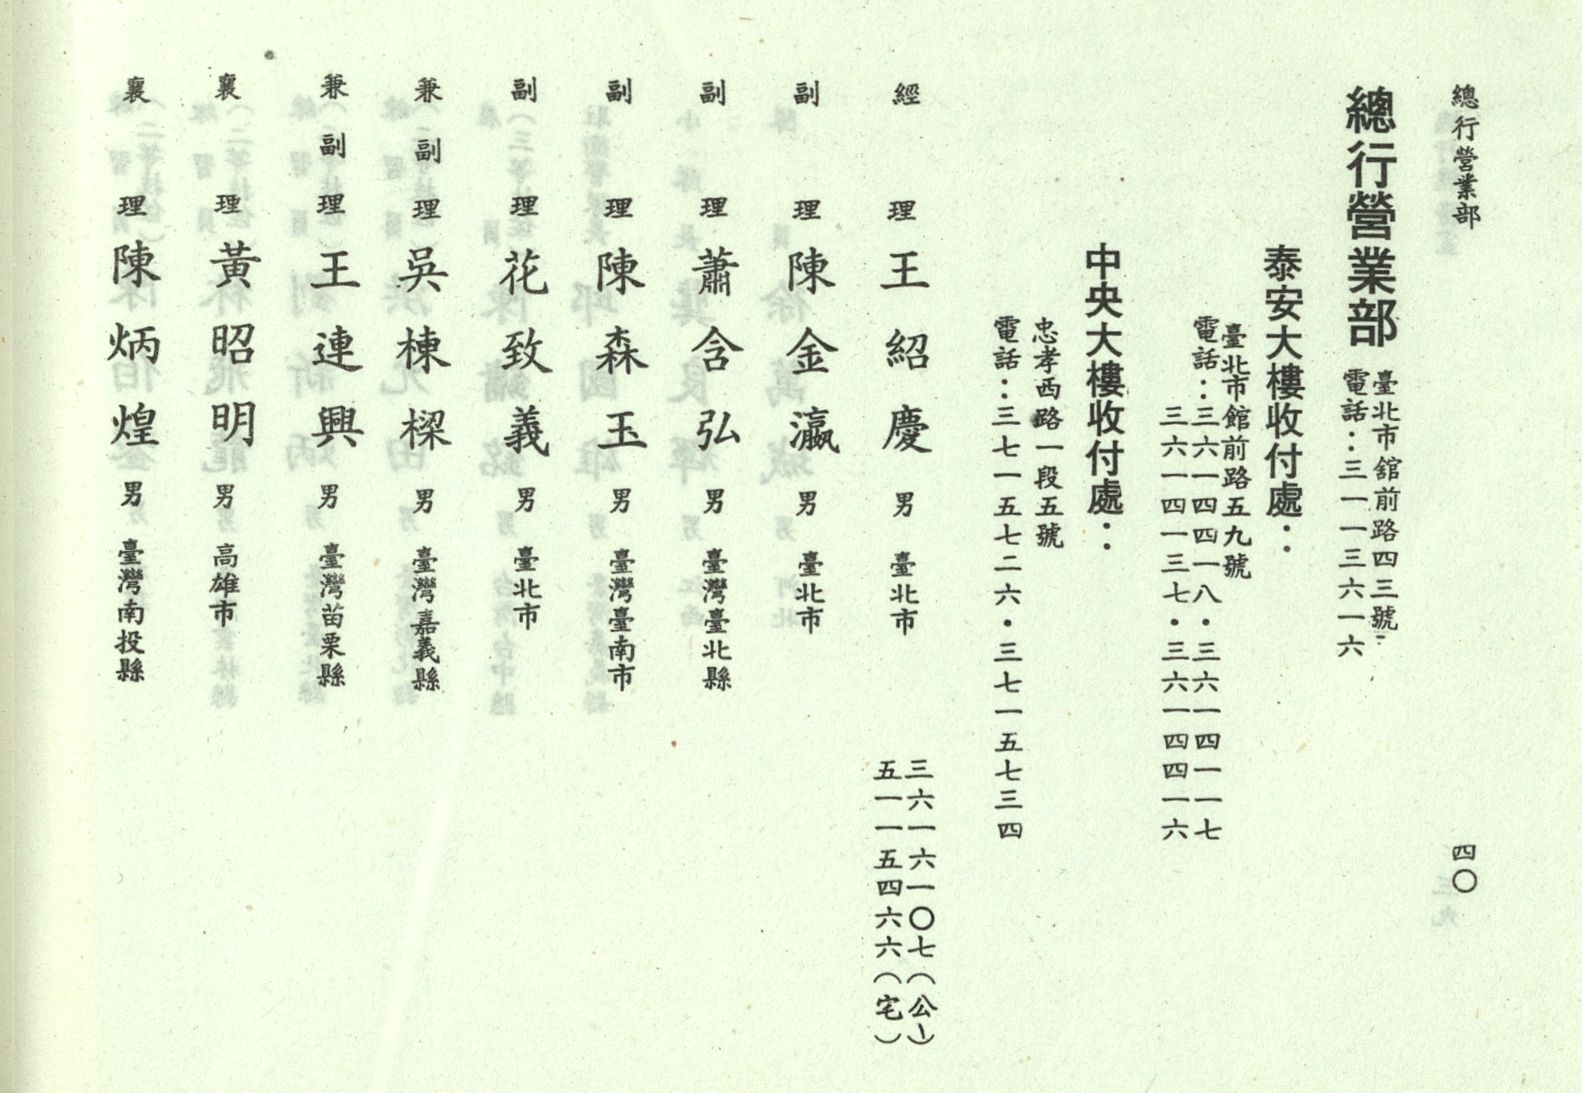 總行營業部
四〇
總行營業部
臺北市舘前路四三號
電話：三一一三六一六
泰安大樓收付處：
臺北市館前路五九號
電話：三六一四四一八・三六一四一一七
三六一四一三七・三六一四四一六
中央大樓收付處：
忠孝西路一段五號
電話：三七一五七二六・三七一五七三四
經理 王紹慶 男 臺北市 三六一六一〇七（公）
五一一五四六六（宅）
副理 陳金瀛 男 臺北市
副理 蕭含弘 男 臺灣臺北縣
副理 陳森玉 男 臺灣臺南市
副理 花致義 男 臺北市
兼副理 吳棟樑 男 臺灣嘉義縣
兼副理 王連興 男 臺灣苗栗縣
襄理 黃昭明 男 高雄市
襄理 陳炳煌 男 臺灣南投縣